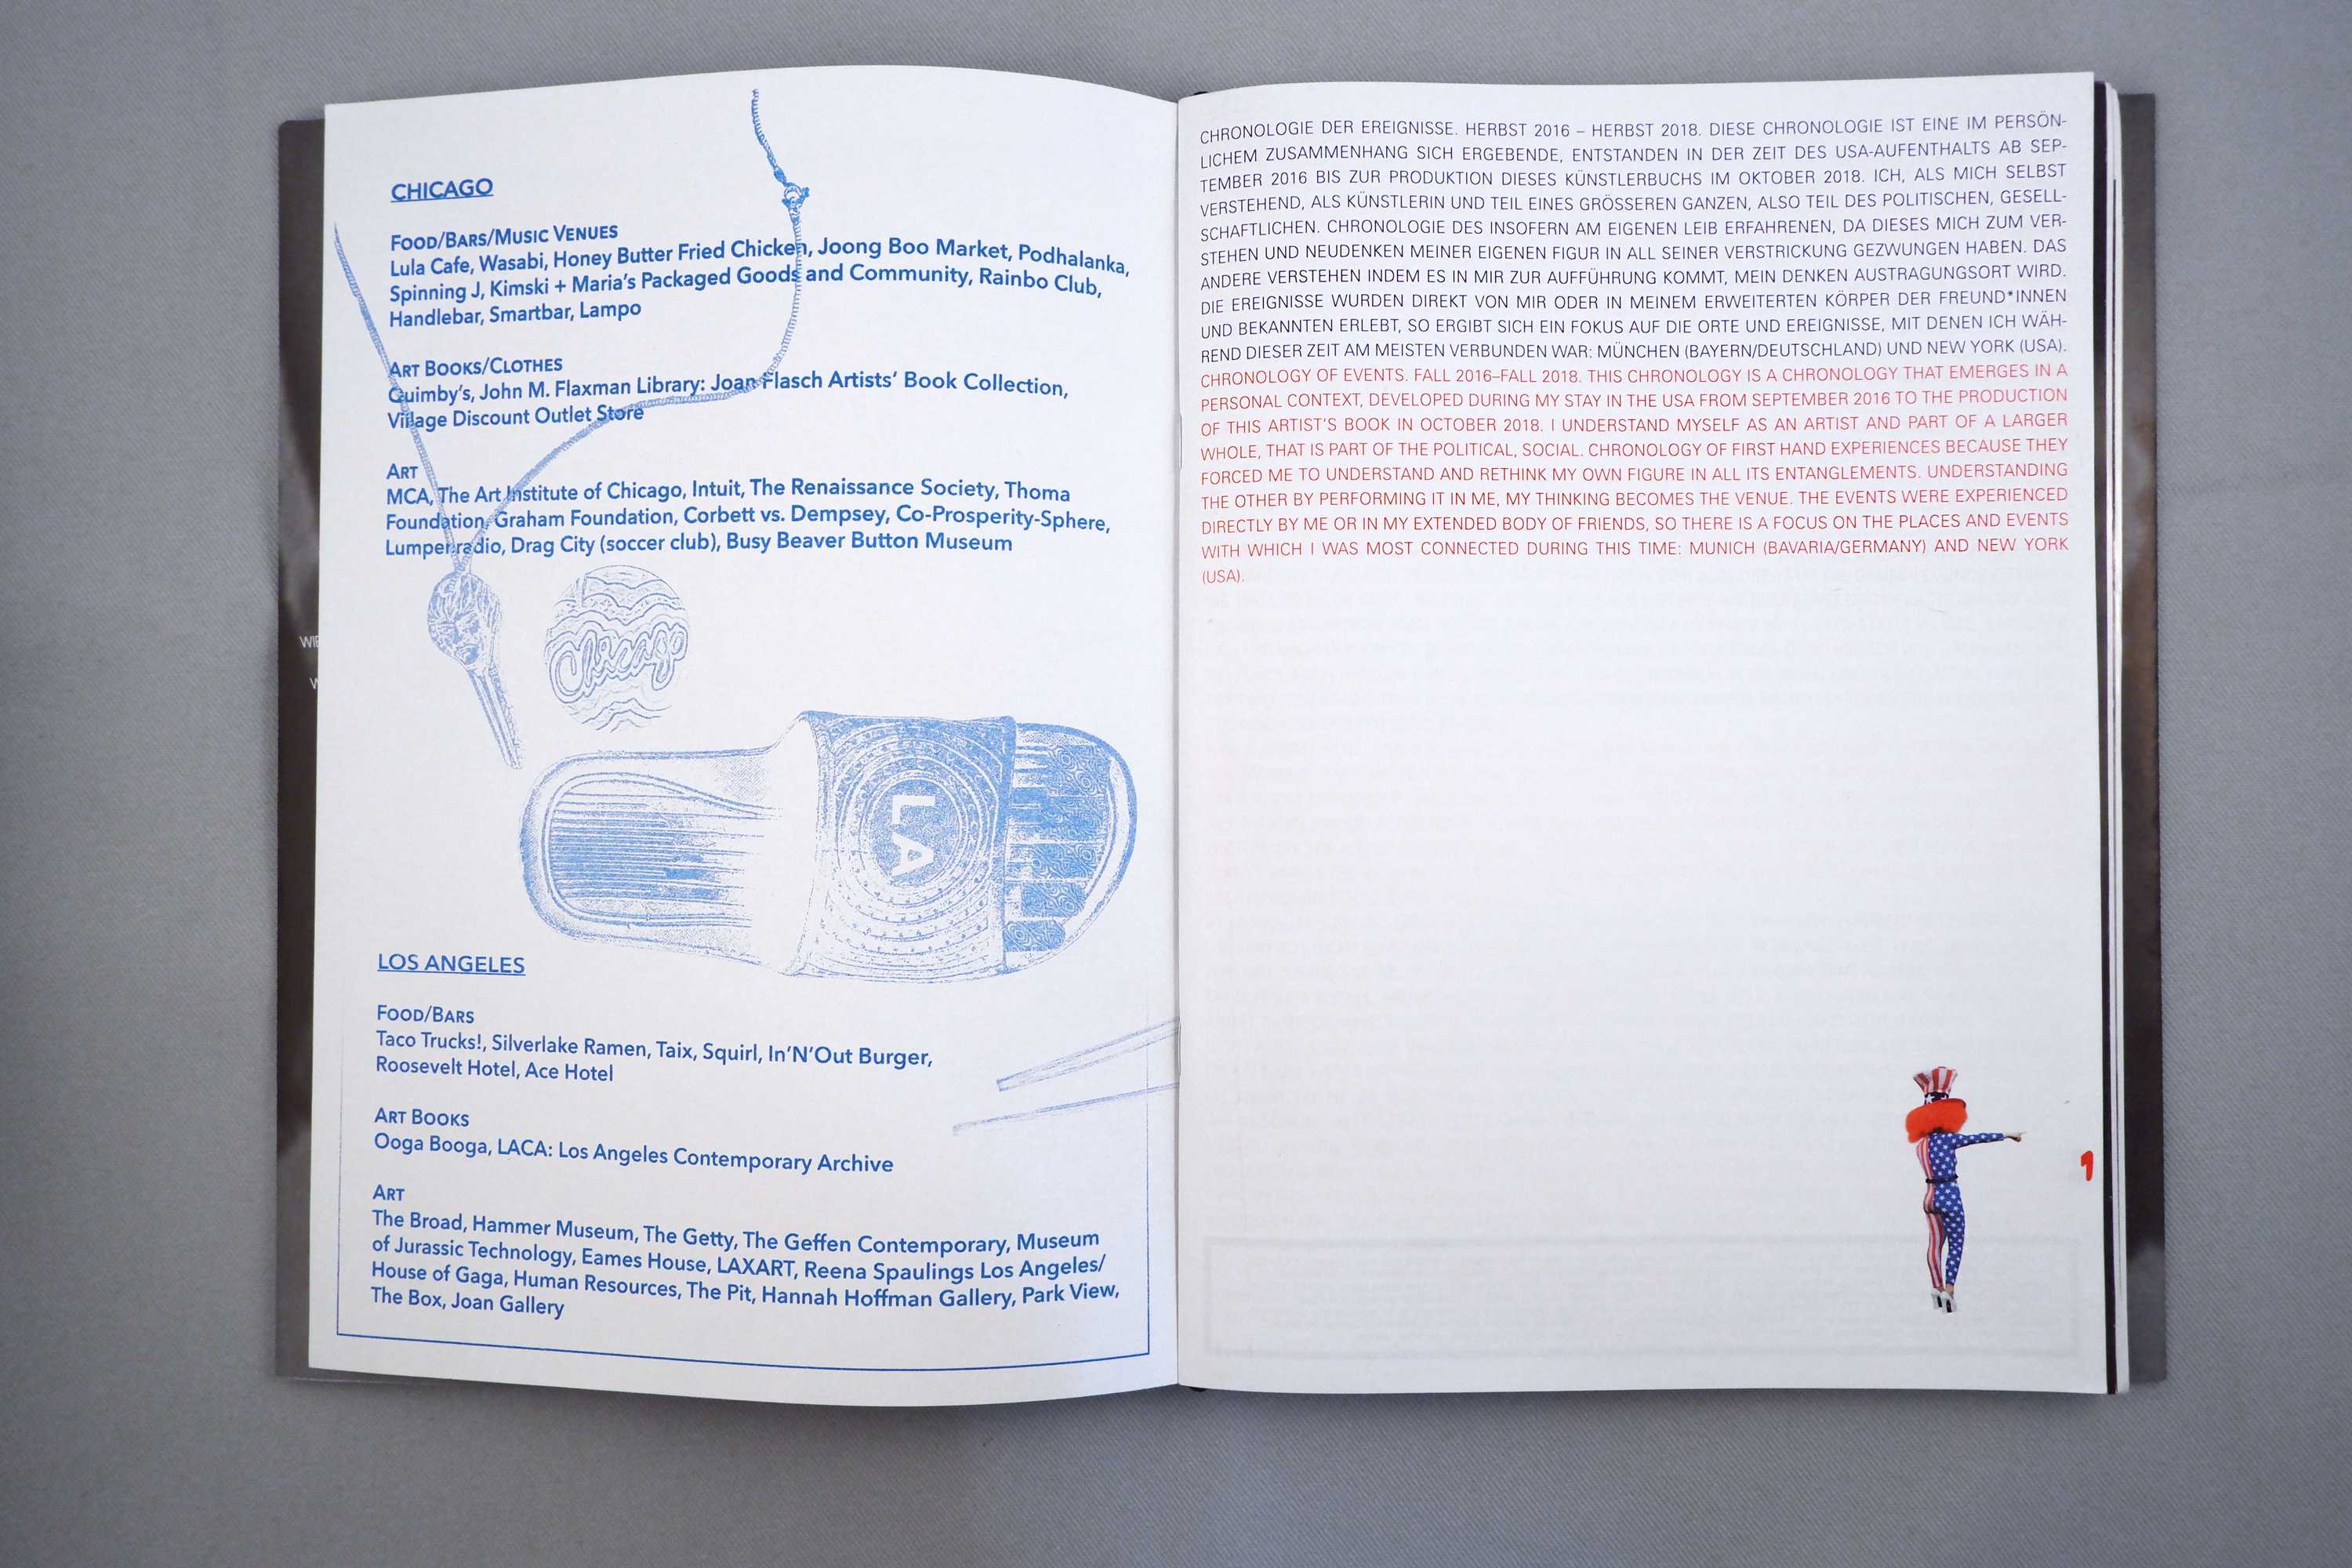 CHICAGO
FOOD/BARS/MUSIC VENUES
Lula Cafe, Wasabi, Honey Butter Fried Chicken, Joong Boo Market, Podhalanka,
Spinning J, Kimski + Maria's Packaged Goods and Community, Rainbo Club,
Handlebar, Smartbar, Lampo
ART BOOKS/CLOTHES
Quimby's, John M. Flaxman Library: Joan Flasch Artists' Book Collection,
Village Discount Outlet Store
ART
MCA, The Art Institute of Chicago, Intuit, The Renaissance Society, Thoma
Foundation, Graham Foundation, Corbett vs. Dempsey, Co-Prosperity-Sphere,
Lumpenradio, Drag City (soccer club), Busy Beaver Button Museum
Chicago
LA
LOS ANGELES
FOOD/BARS
Taco Trucks!, Silverlake Ramen, Taix, Squirl, In'N'Out Burger,
Roosevelt Hotel, Ace Hotel
ART BOOKS
Ooga Booga, LACA: Los Angeles Contemporary Archive
ART
The Broad, Hammer Museum, The Getty, The Geffen Contemporary, Museum
of Jurassic Technology, Eames House, LAXART, Reena Spaulings Los Angeles/
House of Gaga, Human Resources, The Pit, Hannah Hoffman Gallery, Park View,
The Box, Joan Gallery
CHRONOLOGIE DER EREIGNISSE. HERBST 2016 – HERBST 2018. DIESE CHRONOLOGIE IST EINE IM PERSÖN-
LICHEM ZUSAMMENHANG SICH ERGEBENDE, ENTSTANDEN IN DER ZEIT DES USA-AUFENTHALTS AB SEP-
TEMBER 2016 BIS ZUR PRODUKTION DIESES KÜNSTLERBUCHS IM OKTOBER 2018. ICH, ALS MICH SELBST
VERSTEHEND, ALS KÜNSTLERIN UND TEIL EINES GRÖSSEREN GANZEN, ALSO TEIL DES POLITISCHEN, GESELL-
SCHAFTLICHEN. CHRONOLOGIE DES INSOFERN AM EIGENEN LEIB ERFAHRENEN, DA DIESES MICH ZUM VER-
STEHEN UND NEUDENKEN MEINER EIGENEN FIGUR IN ALL SEINER VERSTRICKUNG GEZWUNGEN HABEN. DAS
ANDERE VERSTEHEN INDEM ES IN MIR ZUR AUFFÜHRUNG KOMMT, MEIN DENKEN AUSTRAGUNGSORT WIRD.
DIE EREIGNISSE WURDEN DIREKT VON MIR ODER IN MEINEM ERWEITERTEN KÖRPER DER FREUND*INNEN
UND BEKANNTEN ERLEBT, SO ERGIBT SICH EIN FOKUS AUF DIE ORTE UND EREIGNISSE, MIT DENEN ICH WÄH-
REND DIESER ZEIT AM MEISTEN VERBUNDEN WAR: MÜNCHEN (BAYERN/DEUTSCHLAND) UND NEW YORK (USA).
CHRONOLOGY OF EVENTS. FALL 2016–FALL 2018. THIS CHRONOLOGY IS A CHRONOLOGY THAT EMERGES IN A
PERSONAL CONTEXT, DEVELOPED DURING MY STAY IN THE USA FROM SEPTEMBER 2016 TO THE PRODUCTION
OF THIS ARTIST'S BOOK IN OCTOBER 2018. I UNDERSTAND MYSELF AS AN ARTIST AND PART OF A LARGER
WHOLE, THAT IS PART OF THE POLITICAL, SOCIAL. CHRONOLOGY OF FIRST HAND EXPERIENCES BECAUSE THEY
FORCED ME TO UNDERSTAND AND RETHINK MY OWN FIGURE IN ALL ITS ENTANGLEMENTS. UNDERSTANDING
THE OTHER BY PERFORMING IT IN ME, MY THINKING BECOMES THE VENUE. THE EVENTS WERE EXPERIENCED
DIRECTLY BY ME OR IN MY EXTENDED BODY OF FRIENDS, SO THERE IS A FOCUS ON THE PLACES AND EVENTS
WITH WHICH I WAS MOST CONNECTED DURING THIS TIME: MUNICH (BAVARIA/GERMANY) AND NEW YORK
(USA).
1